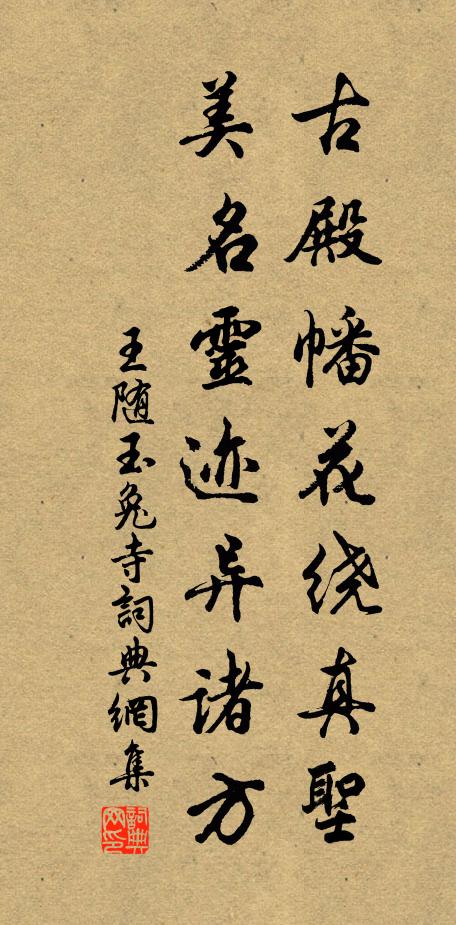 古殿幡花绕真聖
美名靈迹异諸方
王随玉兔寺詞典網集
詞典网印